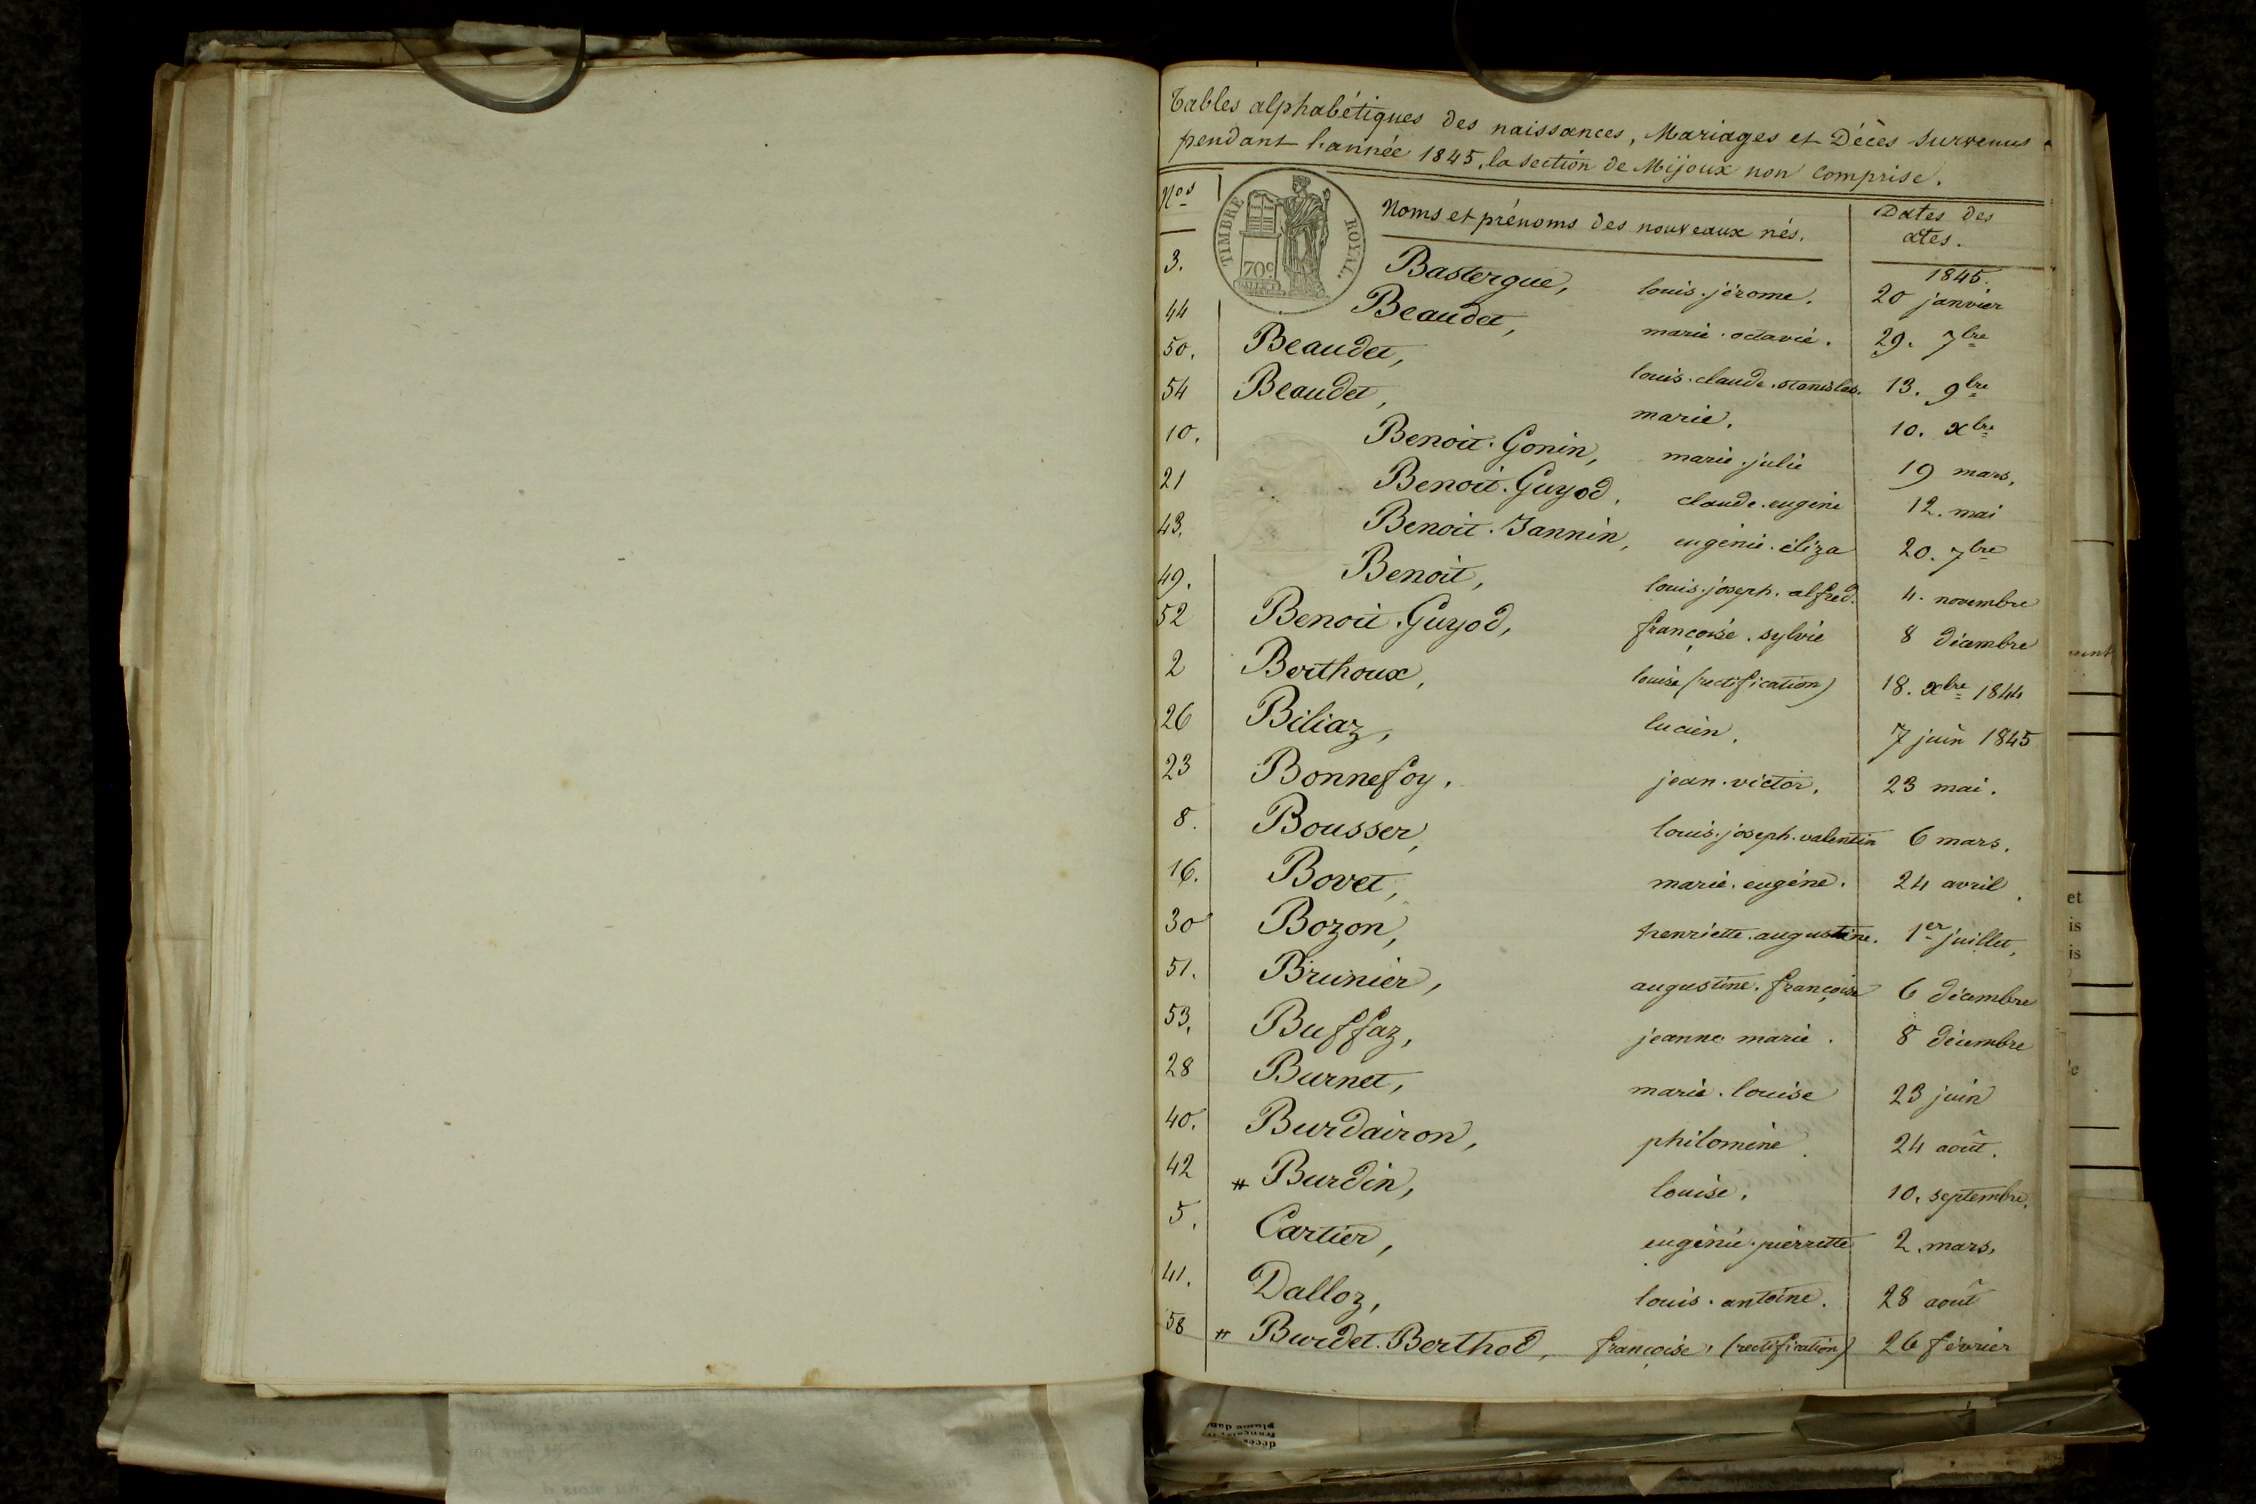 Tables alphabétiques des naissances, Mariages et Décès survenus
pendant l'année 1845, la section de Mijoux non comprise.
Nos Noms et prénoms des nouveaux nés. Dates des
actes.
TIMBRE ROYAL.
70c
1845.
3. Bastergue, louis. jérome. 20 janvier
44 Beaudet, marie. octavie. 29. 7bre
50. Beaudet, louis. claude. stanislas. 13. 9bre
54 Beaudet, marie. 10. xbre
10. Benoit. Gonin, marie. julie 19 mars,
21 Benoit. Guyod, claude. eugène 12. mai
43. Benoit. Jannin, eugénie. éliza 20. 7bre
49. Benoit, louis. joseph. alfred. 4. novembre
52 Benoit. Guyod, françoise. sylvie 8 décembre
2 Berthoux, louise (rectification) 18. xbre 1844
26 Biliaz, lucien. 7 juin 1845
23 Bonnefoy. jean. victor. 23 mai.
8. Bousser, louis. joseph. valentin 6 mars.
16. Bovet, marie. eugène. 24 avril.
30 Bozon, henriette. augustine. 1er juillet,
51. Brunier, augustine. françoise 6 décembre
53. Buffaz, jeanne marie. 8 décembre
28 Burnet, marie. louise 23 juin
40. Burdairon, philomène. 24 août.
42 # Burdin, louise. 10. septembre.
5. Cartier, eugénie. pierrette 2. mars.
41. Dalloz, louis. antoine. 28 août
58 # Burdet. Berthod, françoise, (rectification) 26 février